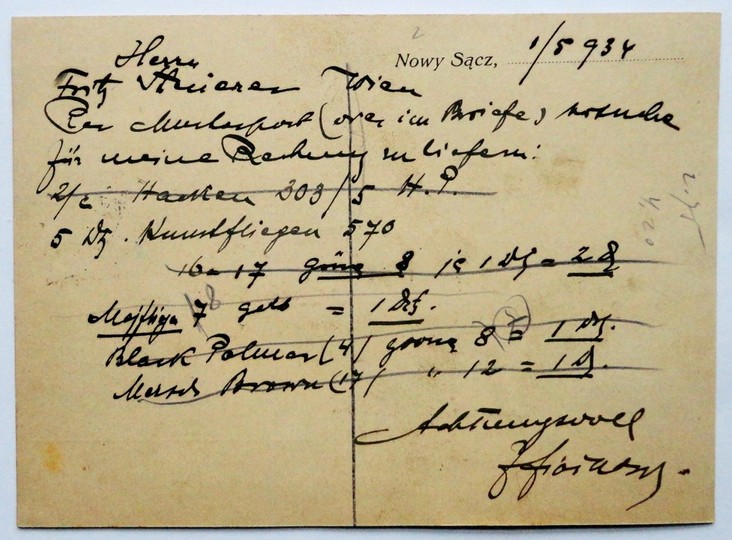 Nowy Sącz, 1/5 934
Herrn
Fritz Wien
Per Musterpost (oder im Briefe) ersuche
für meine Rechnung zu liefern:
Hacken 303/5 H.P.
5 Dz. Kunstfliegen 570
16 = 17 grösse 8 je 1 Dz = 2 Dz
7 gelb = 1 Dz.
Black Palmer (4) grösse 8 = 1 Dz.
Marsch Brown (17) " 12 = 1 Dz.
Achtungsvoll